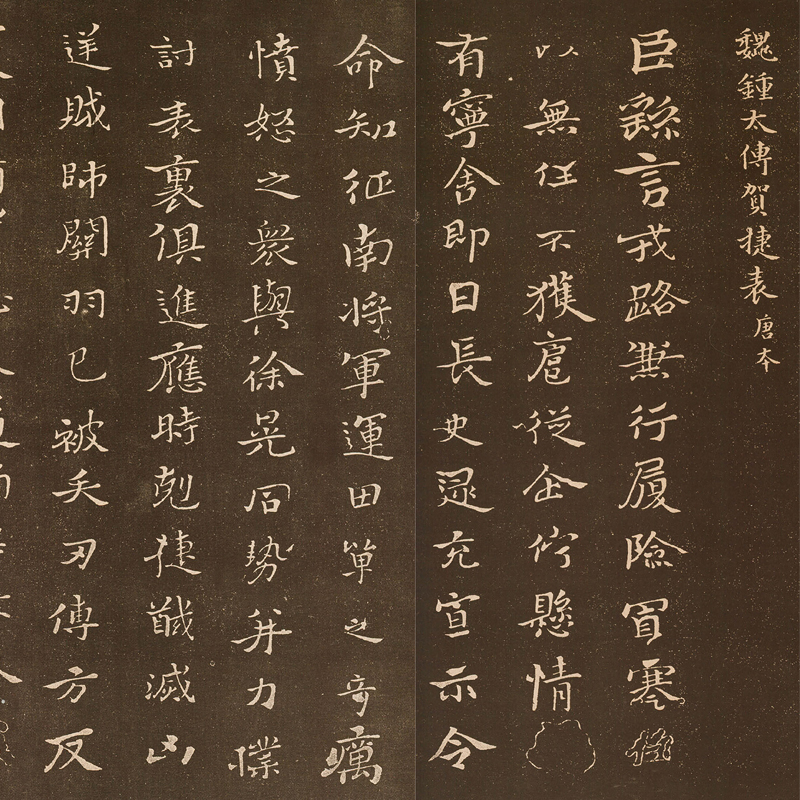 魏鍾太傅賀捷表唐本
臣繇言戎路兼行履險冒寒
以無任不獲扈從企佇懸情
有寧舍即日長史逯充宣示令
命知征南將軍運田單之奇厲
憤怒之衆與徐晃同勢并力撲
討表裏俱進應時剋捷馘滅凶
逆賊帥關羽已被矢刃傅方反